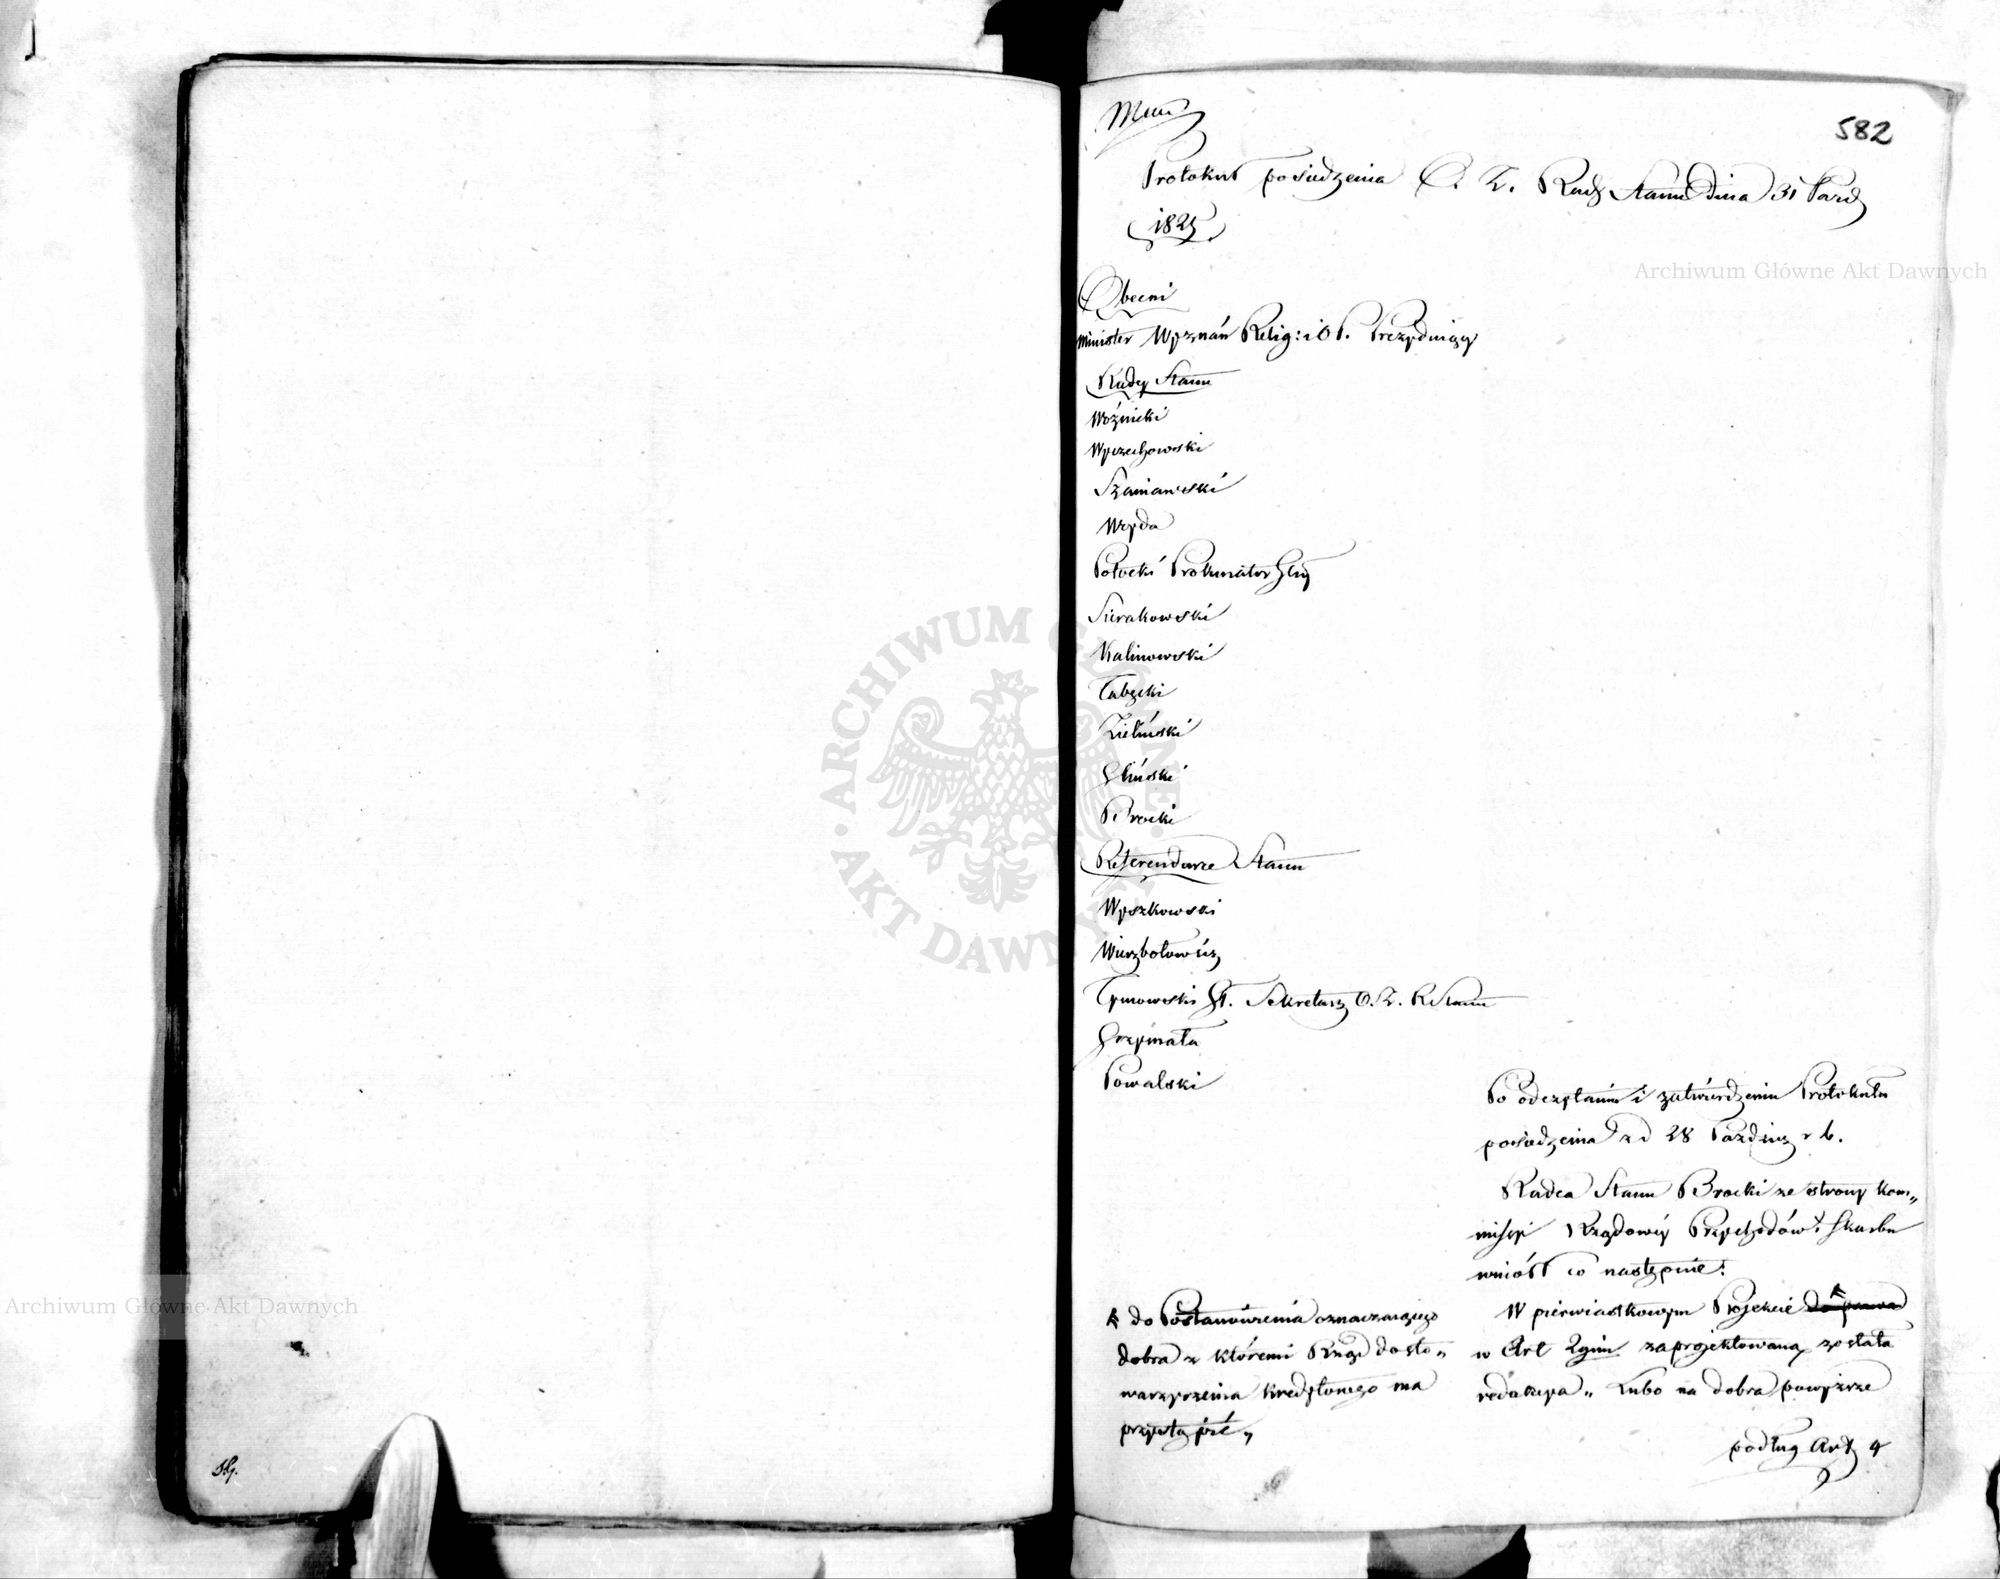 582
Protokuł posiedzenia O. Z. Rady Stanu Dnia 31 Paźd
1825
Obecni
Minister Wyznań Relig: i O P. Prezydujący
Radcy Stanu
Woźnicki
Wyczechowski
Szaniawski
Wzyda
Potocki Prokurator Glny
Sierakowski
Kalinowski
Tabęcki
Zieliński
Gliński
Brocki
Referendarze Stanu
Wyszkowski
Wierzbołowicz
Tymowski St. Sekretarz O. Z. R Stanu
Grzymała
Powalski
Po odczytaniu i zatwierdzeniu Protokułu
posiedzenia z d 28 Paździer r b.
Radca Stanu Brocki ze strony Kom„
misyi Rządowey Przychodów i Skarbu
wniósł co następnie:
W pierwiastkowym Projekcie do prawa
w Art 2gim zaprojektowaną została
redakcya „ Lubo na dobra powyższe
podług Art 4
do Postanowienia oznaczaiącego
dobra z któremi Rząd do sto„
warzyszenia kredytowego ma
przystąpić „
Archiwum Główne Akt Dawnych
Archiwum Główne Akt Dawnych
ARCHIWUM GŁÓWNE · AKT DAWNYCH ·